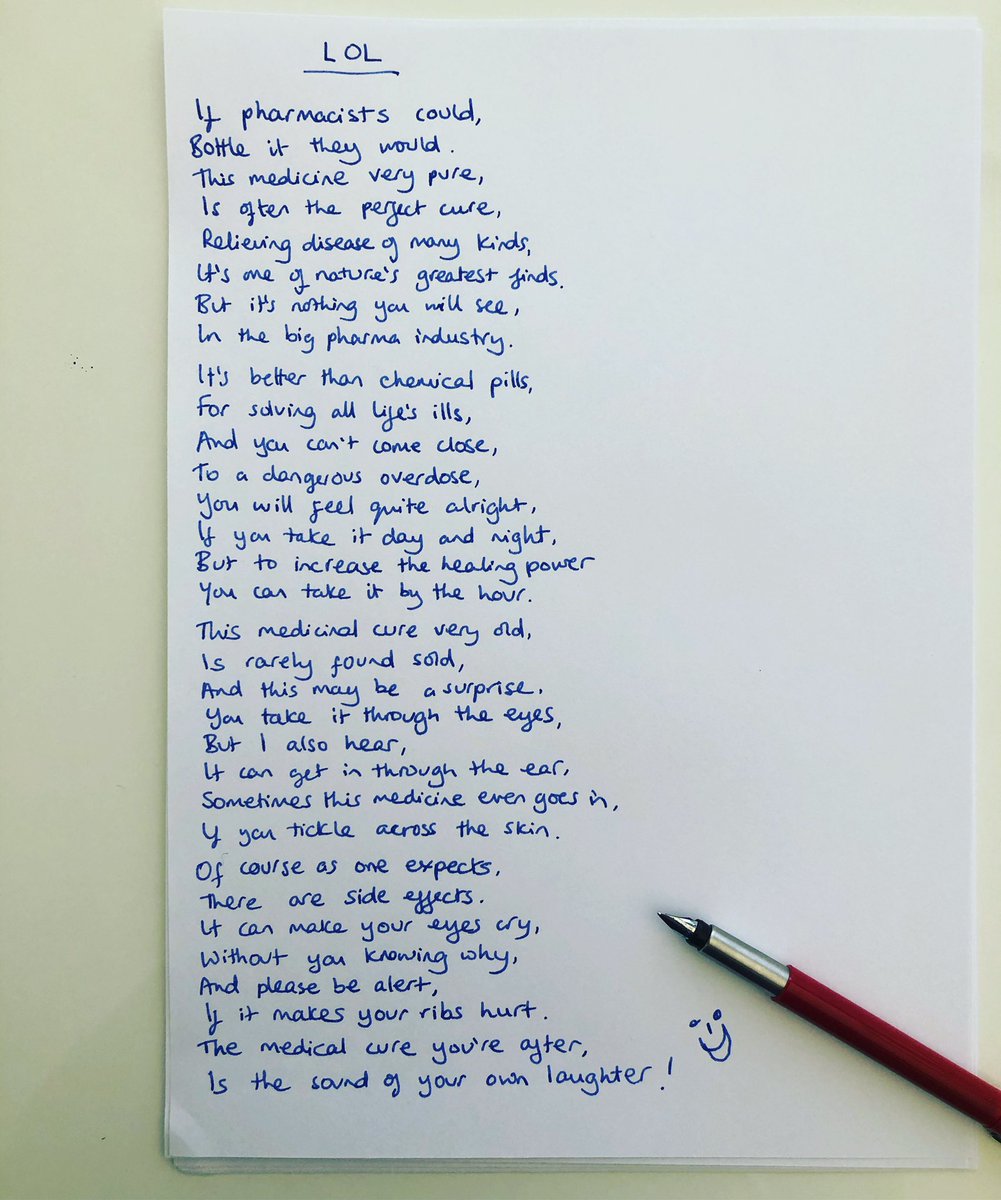 LOL
If pharmacists could,
Bottle it they would.
This medicine very pure,
Is often the perfect cure,
Relieving disease of many kinds,
It's one of nature's greatest finds.
But it's nothing you will see,
In the big pharma industry.
It's better than chemical pills,
For solving all life's ills,
And you can't come close,
To a dangerous overdose,
You will feel quite alright,
If you take it day and night,
But to increase the healing power
You can take it by the hour.
This medicinal cure very old,
Is rarely found sold,
And this may be a surprise.
You take it through the eyes,
But I also hear,
It can get in through the ear,
Sometimes this medicine even goes in,
If you tickle across the skin.
Of course as one expects,
There are side effects.
It can make your eyes cry,
Without you knowing why,
And please be alert,
If it makes your ribs hurt.
The medical cure you're after,
Is the sound of your own laughter!